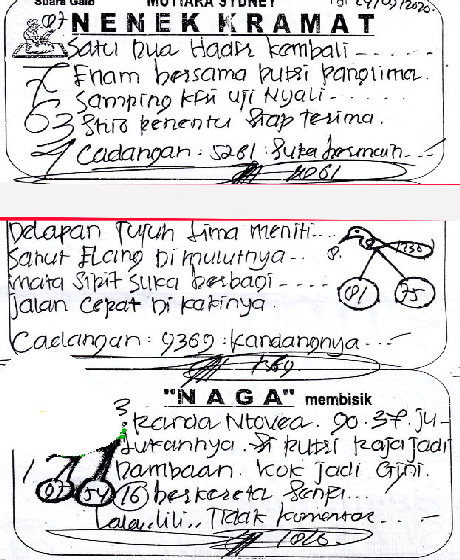 Suara Gaib MUTIARA SYDNEY Tgl 24/09/2020.
07 NENEK KRAMAT
Satu Dua Hadir kembali
Enam bersama putri panglima.
Samping kiri uji Nyali
63 Shio penentu Siap terima.
Cadangan: 5281: Suka bermain
1081
Delapan Tujuh Lima meniti
Sahut Elang Di mulutnya
mata Sipit Suka berbagi
jalan cepat Di kakinya.
Cadangan: 9369: kandangnya
81 75
"NAGA" membisik
3
kanda 90.37. ju-
lukannya. putri Raja jadi
Dambaan. kok jadi Gini.
07 54 16 berkereta
Lala..lili.. Tidak komentar